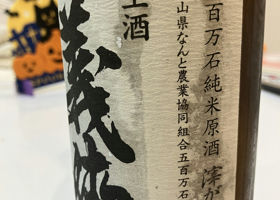 百万石純米原酒 滓が
山県なんと農業協同組合五百万石
生酒
義侠